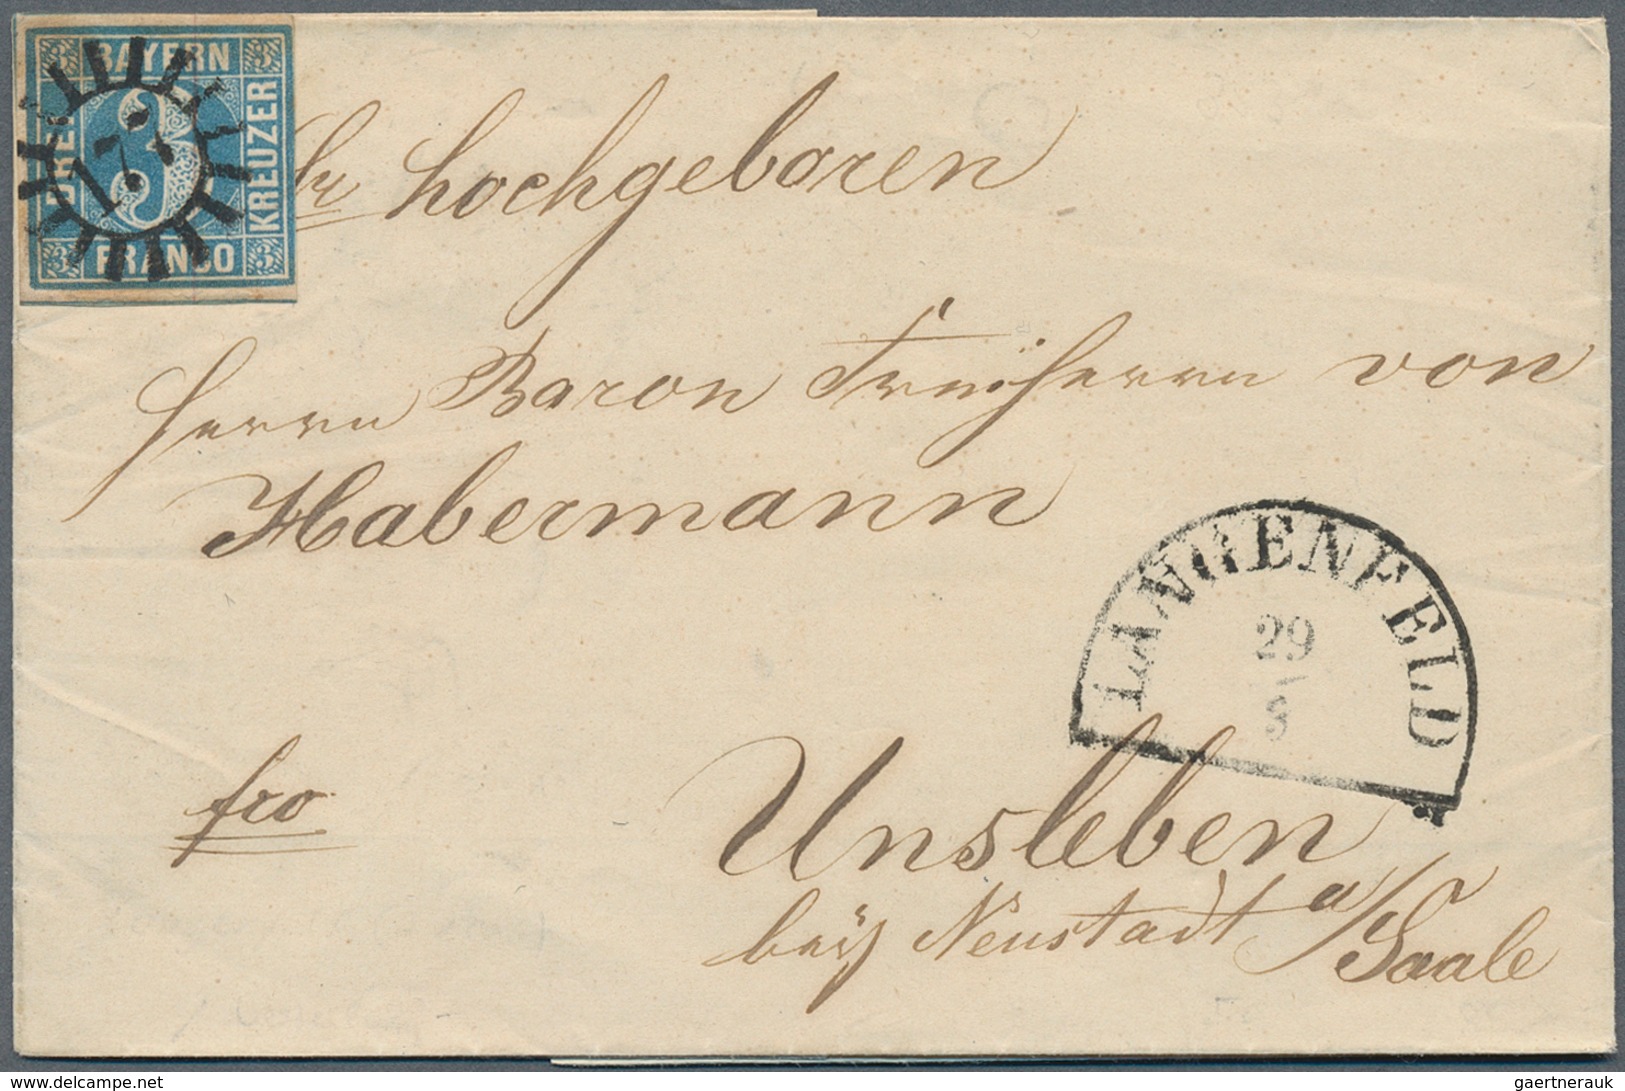 BAYERN
DREI
KREUZER
FRANCO
3 3 3 3
3
177
hochgeboren
Herrn Baron Freiherrn von
Habermann
LANGENFELD
29
/
8
fro
Unsleben
bey Neustadt a/Saale
www.delcampe.net
gaertnerauk